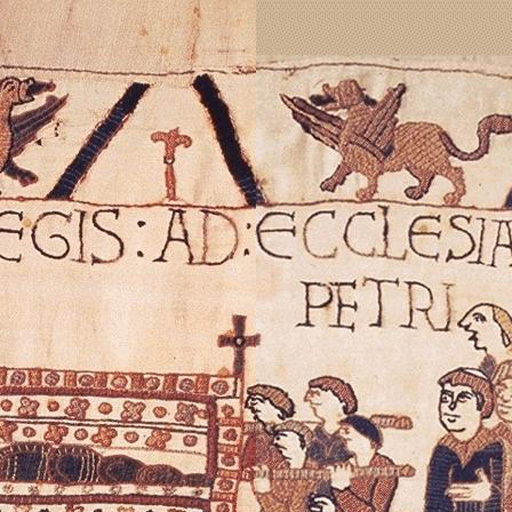 EGIS : AD : ECCLESIA
PETRI